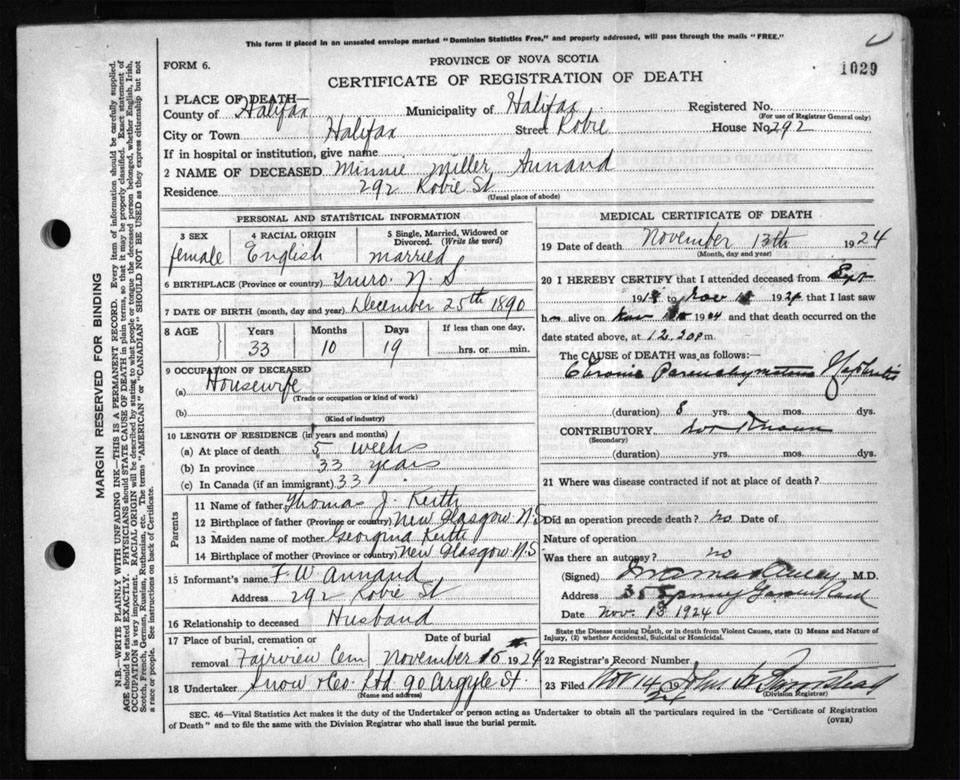 This form if placed in an unsealed envelope marked "Dominion Statistics Free," and properly addressed, will pass through the mails "FREE."
FORM 6.
PROVINCE OF NOVA SCOTIA
1029
CERTIFICATE OF REGISTRATION OF DEATH
1 PLACE OF DEATH—
County of Halifax Municipality of Halifax Registered No.
(For use of Registrar General only)
City or Town Halifax Street Robie House No. 292
If in hospital or institution, give name
2 NAME OF DECEASED Minnie Miller Annand
Residence 292 Robie St
(Usual place of abode)
PERSONAL AND STATISTICAL INFORMATION
3 SEX 4 RACIAL ORIGIN 5 Single, Married, Widowed or Divorced. (Write the word)
female English married
6 BIRTHPLACE (Province or country) Truro N.S
7 DATE OF BIRTH (month, day and year) December 25th 1890
8 AGE Years Months Days If less than one day,
33 10 19 hrs. or min.
9 OCCUPATION OF DECEASED
(a) Housewife
(Trade or occupation or kind of work)
(b)
(Kind of industry)
10 LENGTH OF RESIDENCE (in years and months)
(a) At place of death 5 weeks
(b) In province 33 years
(c) In Canada (if an immigrant) 33
Parents
11 Name of father Thomas J. Keith
12 Birthplace of father (Province or country) New Glasgow N.S
13 Maiden name of mother Georgina Keith
14 Birthplace of mother (Province or country) New Glasgow N.S
15 Informant's name F. W Annand
Address 292 Robie St
16 Relationship to deceased Husband
17 Place of burial, cremation or removal Fairview Cem Date of burial November 15 1924
18 Undertaker Snow & Co. Ltd. 90 Argyle St.
(Name and address)
MEDICAL CERTIFICATE OF DEATH
19 Date of death November 13th 1924
(Month, day and year)
20 I HEREBY CERTIFY that I attended deceased from Sept
19 to Nov 1924 that I last saw
h alive on Nov 19 and that death occurred on the
date stated above, at 12.20 p.m.
The CAUSE OF DEATH was as follows:
Chronic Parenchymatous Nephritis
(duration) 8 yrs. mos. dys.
CONTRIBUTORY not Known
(Secondary)
(duration) yrs. mos. dys.
21 Where was disease contracted if not at place of death?
Did an operation precede death? no Date of
Nature of operation
Was there an autopsy? no
(Signed) M.D.
Address
Date Nov. 13 1924
State the Disease causing Death, or in death from Violent Causes, state (1) Means and Nature of
Injury, (2) whether Accidental, Suicidal or Homicidal.
22 Registrar's Record Number
23 Filed Nov 14 24 John
(Division Registrar)
SEC. 46—Vital Statistics Act makes it the duty of the Undertaker or person acting as Undertaker to obtain all the particulars required in the "Certificate of Registration
of Death" and to file the same with the Division Registrar who shall issue the burial permit.
(OVER)
MARGIN RESERVED FOR BINDING
N.B.—WRITE PLAINLY WITH UNFADING INK—THIS IS A PERMANENT RECORD. Every item of information should be carefully supplied.
AGE should be stated EXACTLY. PHYSICIANS should STATE CAUSE OF DEATH in plain terms, so that it may be properly classified. Exact statement of
OCCUPATION is very important. RACIAL ORIGIN will be described by stating to what people or tongue the deceased person belonged, whether English, Irish,
Scotch, French, German, Russian, Ruthenian, etc. The terms "AMERICAN" or "CANADIAN" SHOULD NOT BE USED as they express citizenship but not
a race or people. See instructions on back of Certificate.